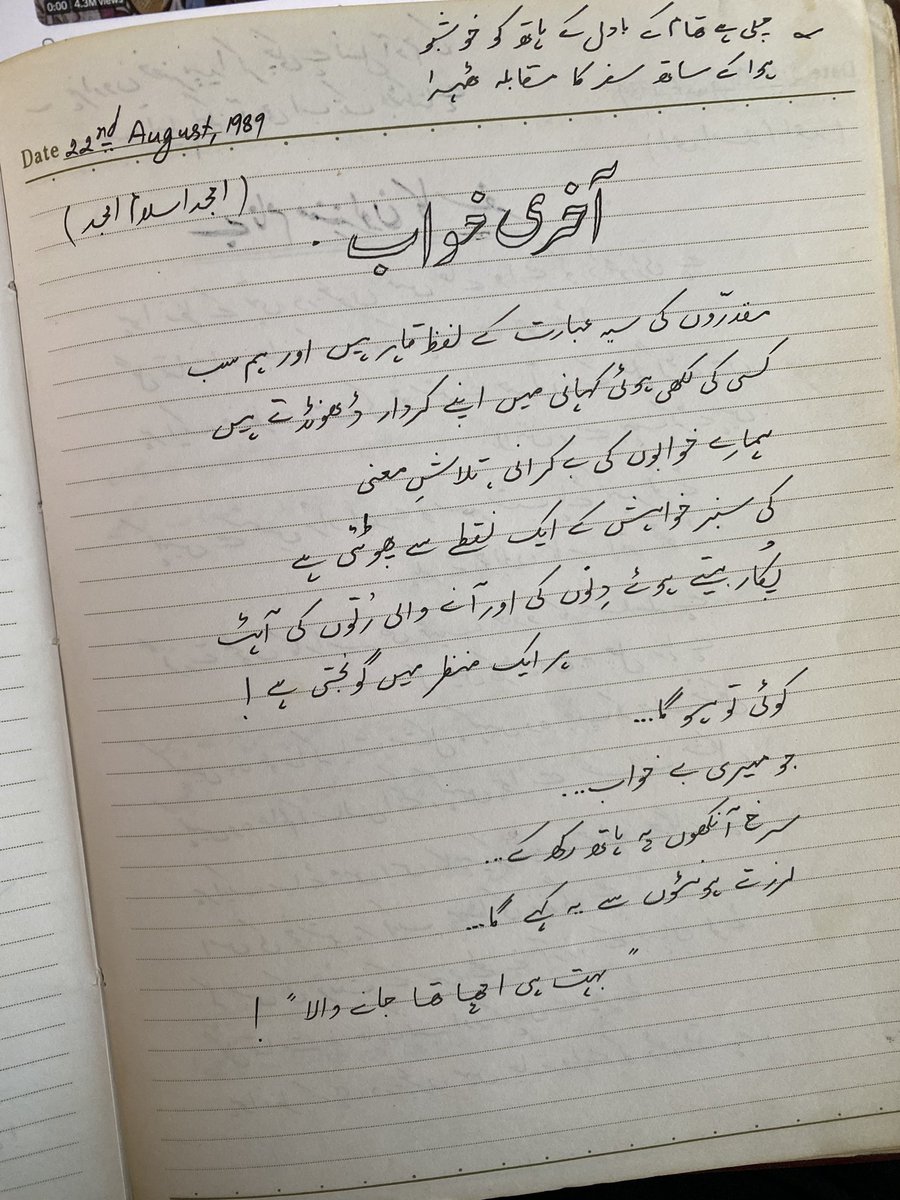 0:00 4.3M views
چلی ہے تھام کے بادل کے ہاتھ کو خوشبو
ہوا کے ساتھ سفر کا مقابلہ ٹھہرا
Date 22nd August, 1989
(امجد اسلام امجد)
آخری خواب
مقدّروں کی سیہ عبارت کے لفظ قاہر ہیں اور ہم سب
کسی کی لکھی ہوئی کہانی میں اپنے کردار ڈھونڈتے ہیں
ہمارے خوابوں کی بے کرانی، تلاشِ معنی
کی سبز خواہش کے ایک نقطے سے پھوٹتی ہے
پُکار بیتے ہوئے دِنوں کی اور آنے والی رُتوں کی آہٹ
ہر ایک منظر میں گونجتی ہے!
کوئی تو ہو گا...
جو میری بے خواب...
سرخ آنکھوں پہ ہاتھ رکھ کے...
لرزتے ہونٹوں سے یہ کہے گا...
"بہت ہی اچھا تھا جانے والا"!